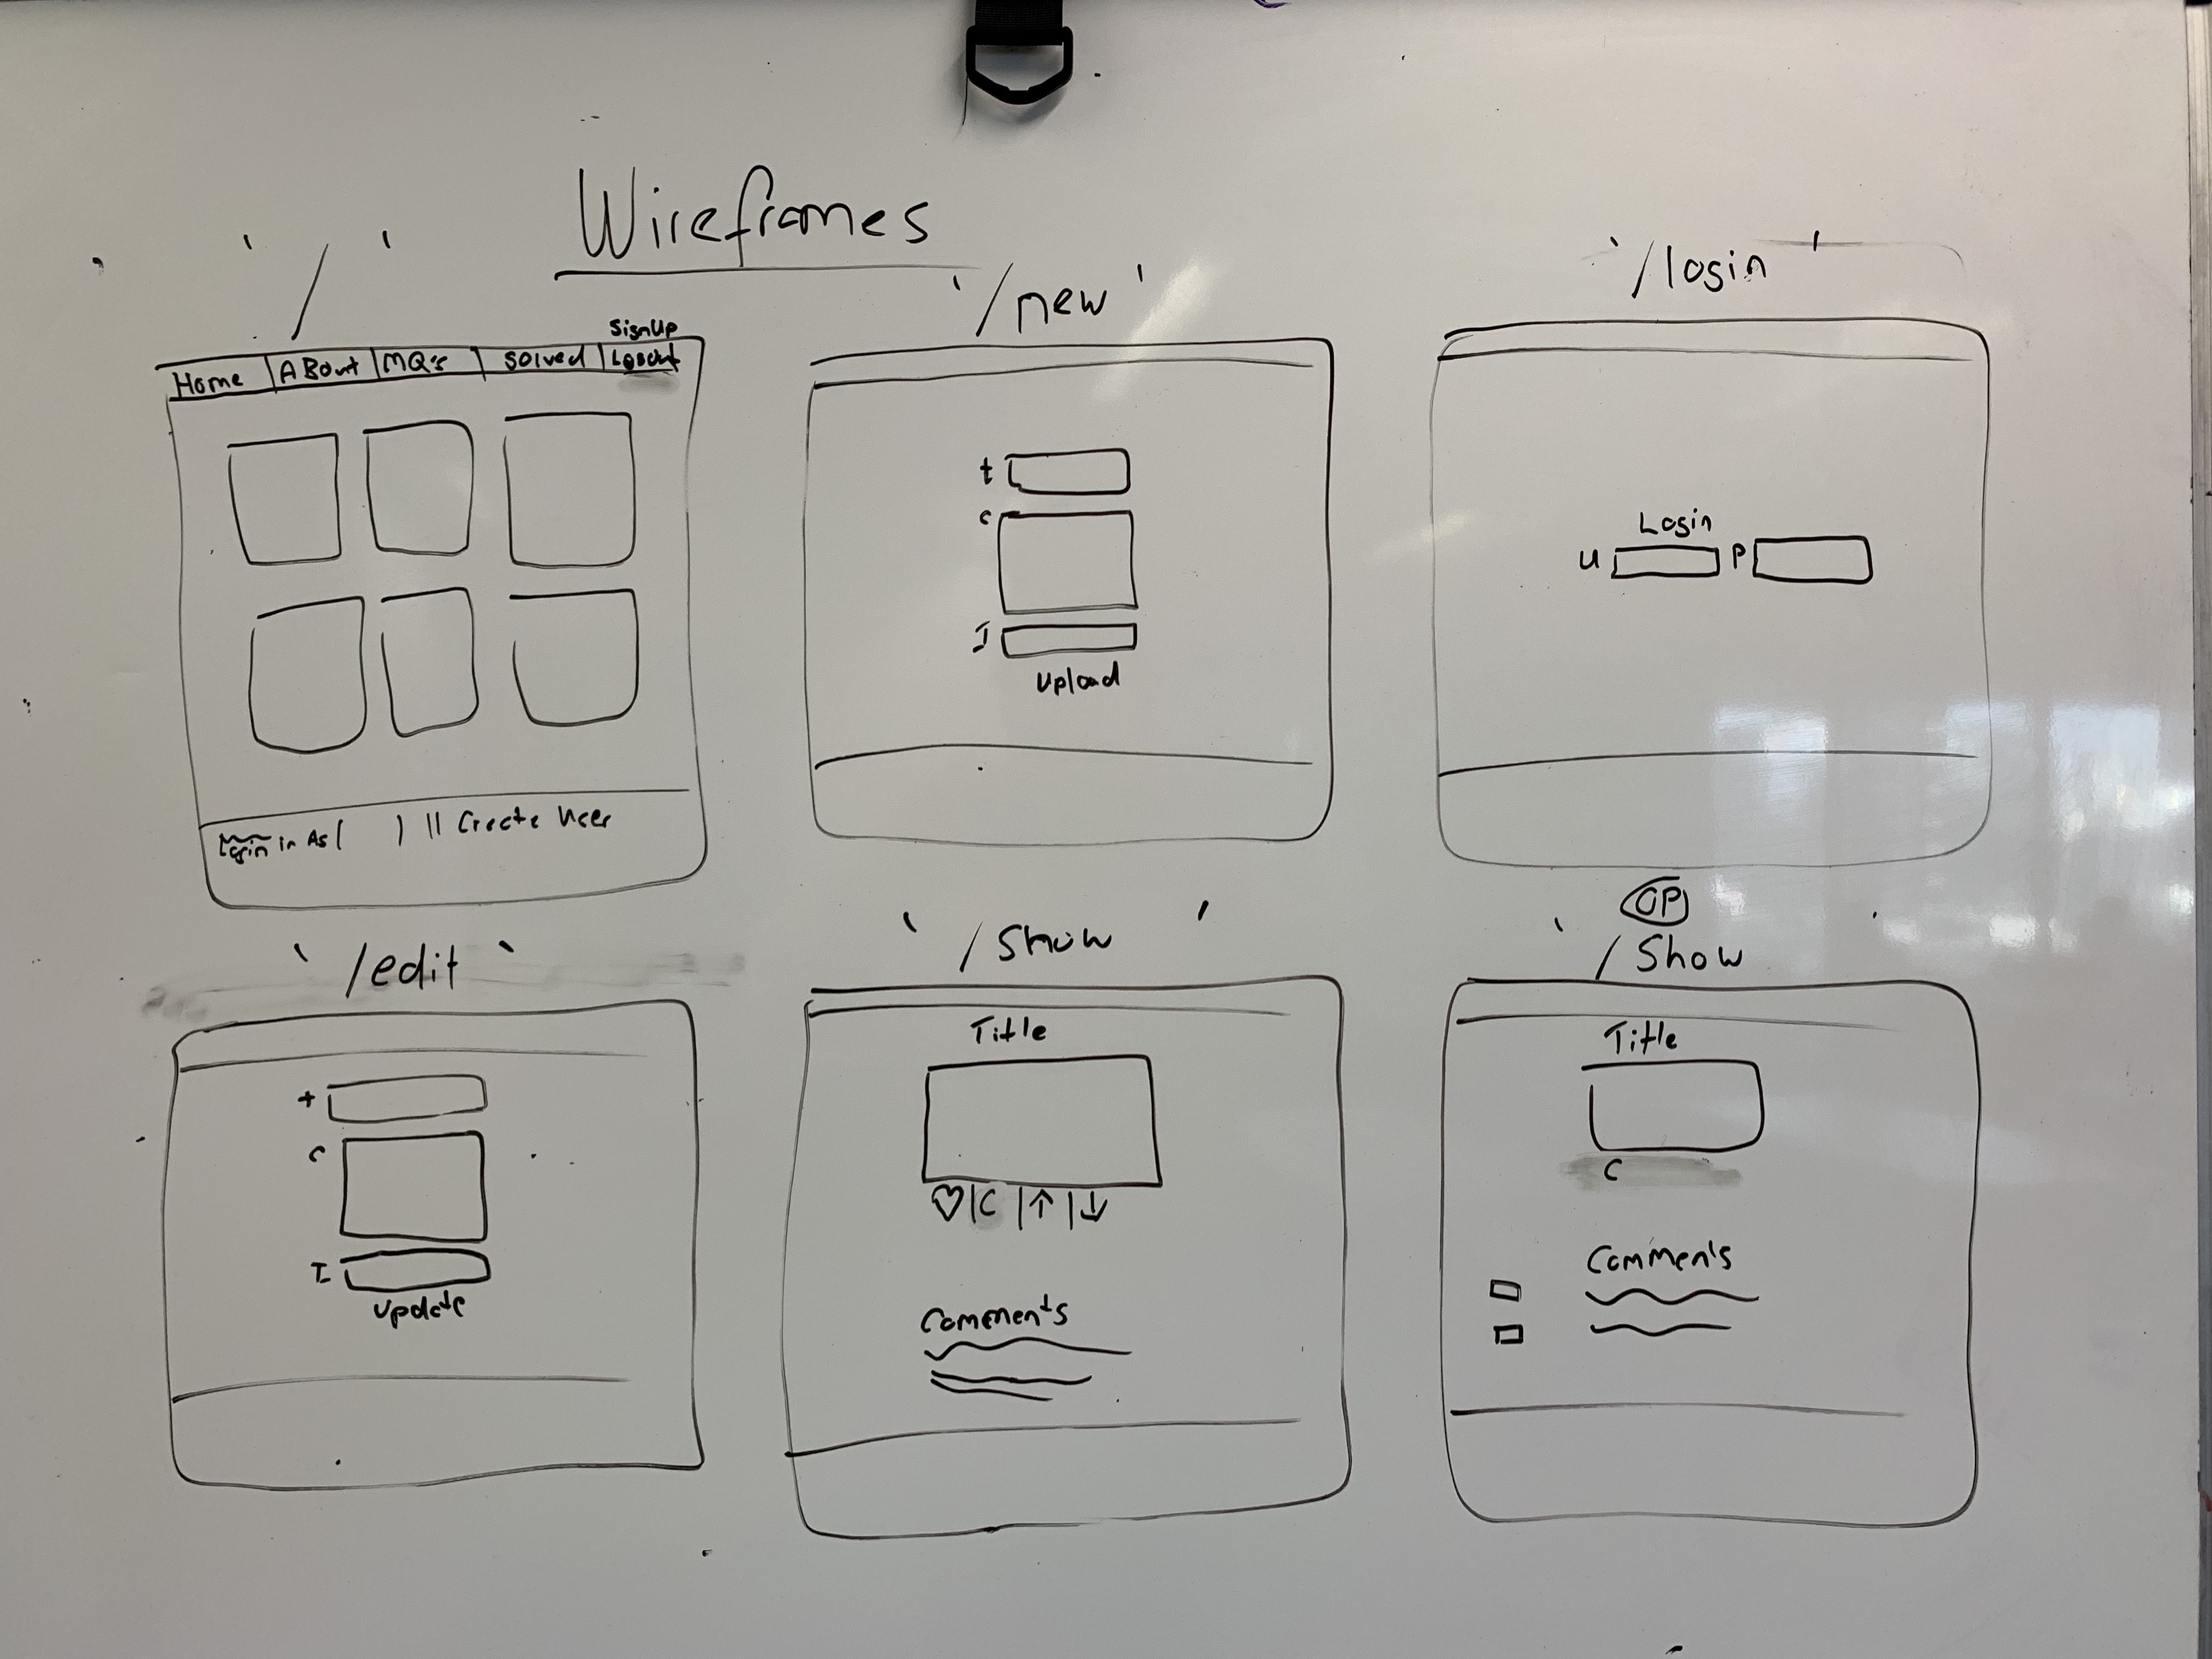 Wireframes
'/'
SignUp
Home | ABout | MQ's | Solved | Logout
Login in As ( ) || Create User
'/new'
t
c
I
Upload
'/login'
Login
U P
'/edit'
t
c
I
Update
'/Show'
Title
♡ | C | ↑ | ↓
Comments
OP
'/Show
Title
C
Comments